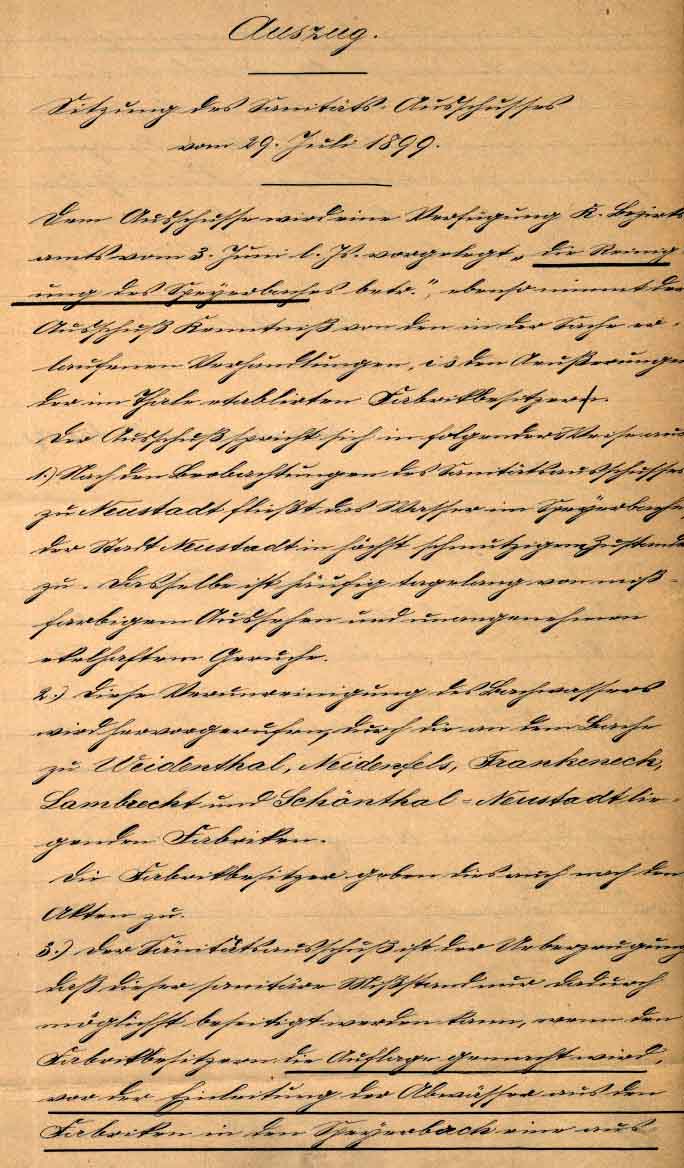 Auszug.
Sitzung des Sanitäts-Ausschusses
vom 29. Juli 1899.
Dem Ausschusse wird eine Verfügung K. Bezirks
amts vom 3. Juni l. Js. vorgelegt „die Reinig
ung des Speyerbaches betr.", ebenso nimmt der
Ausschuß Kenntniß von den in der Sache er-
laufenen Verhandlungen, i. s. den Aeußerungen
der im Thale etablirten Fabrikbesitzern.
Der Ausschuß spricht sich in folgender Weise aus
1.) Nach den Beobachtungen des Sanitätsausschusses
zu Neustadt fließt das Wasser im Speyerbache,
der Stadt Neustadt in höchst schmutzigem Zustande
zu. Dasselbe ist häufig tagelang von miß-
farbigem Aussehen und unangenehmen
ekelhaftem Geruche.
2.) Diese Verunreinigung des Bachwassers
wird hervorgerufen, durch die an dem Bache
zu Weidenthal, Neidenfels, Frankeneck,
Lambrecht und Schönthal-Neustadt lie-
genden Fabriken.
Die Fabrikbesitzer geben dies auch nach den
Akten zu.
3.) Der Sanitätsausschuß ist der Ueberzeugung
daß dieser sanitäre Mißstand nur dadurch
möglichst beseitigt werden kann, wenn den
Fabrikbesitzern die Auflage gemacht wird,
vor der Einleitung der Abwässer aus den
Fabriken in den Speyerbach eine aus